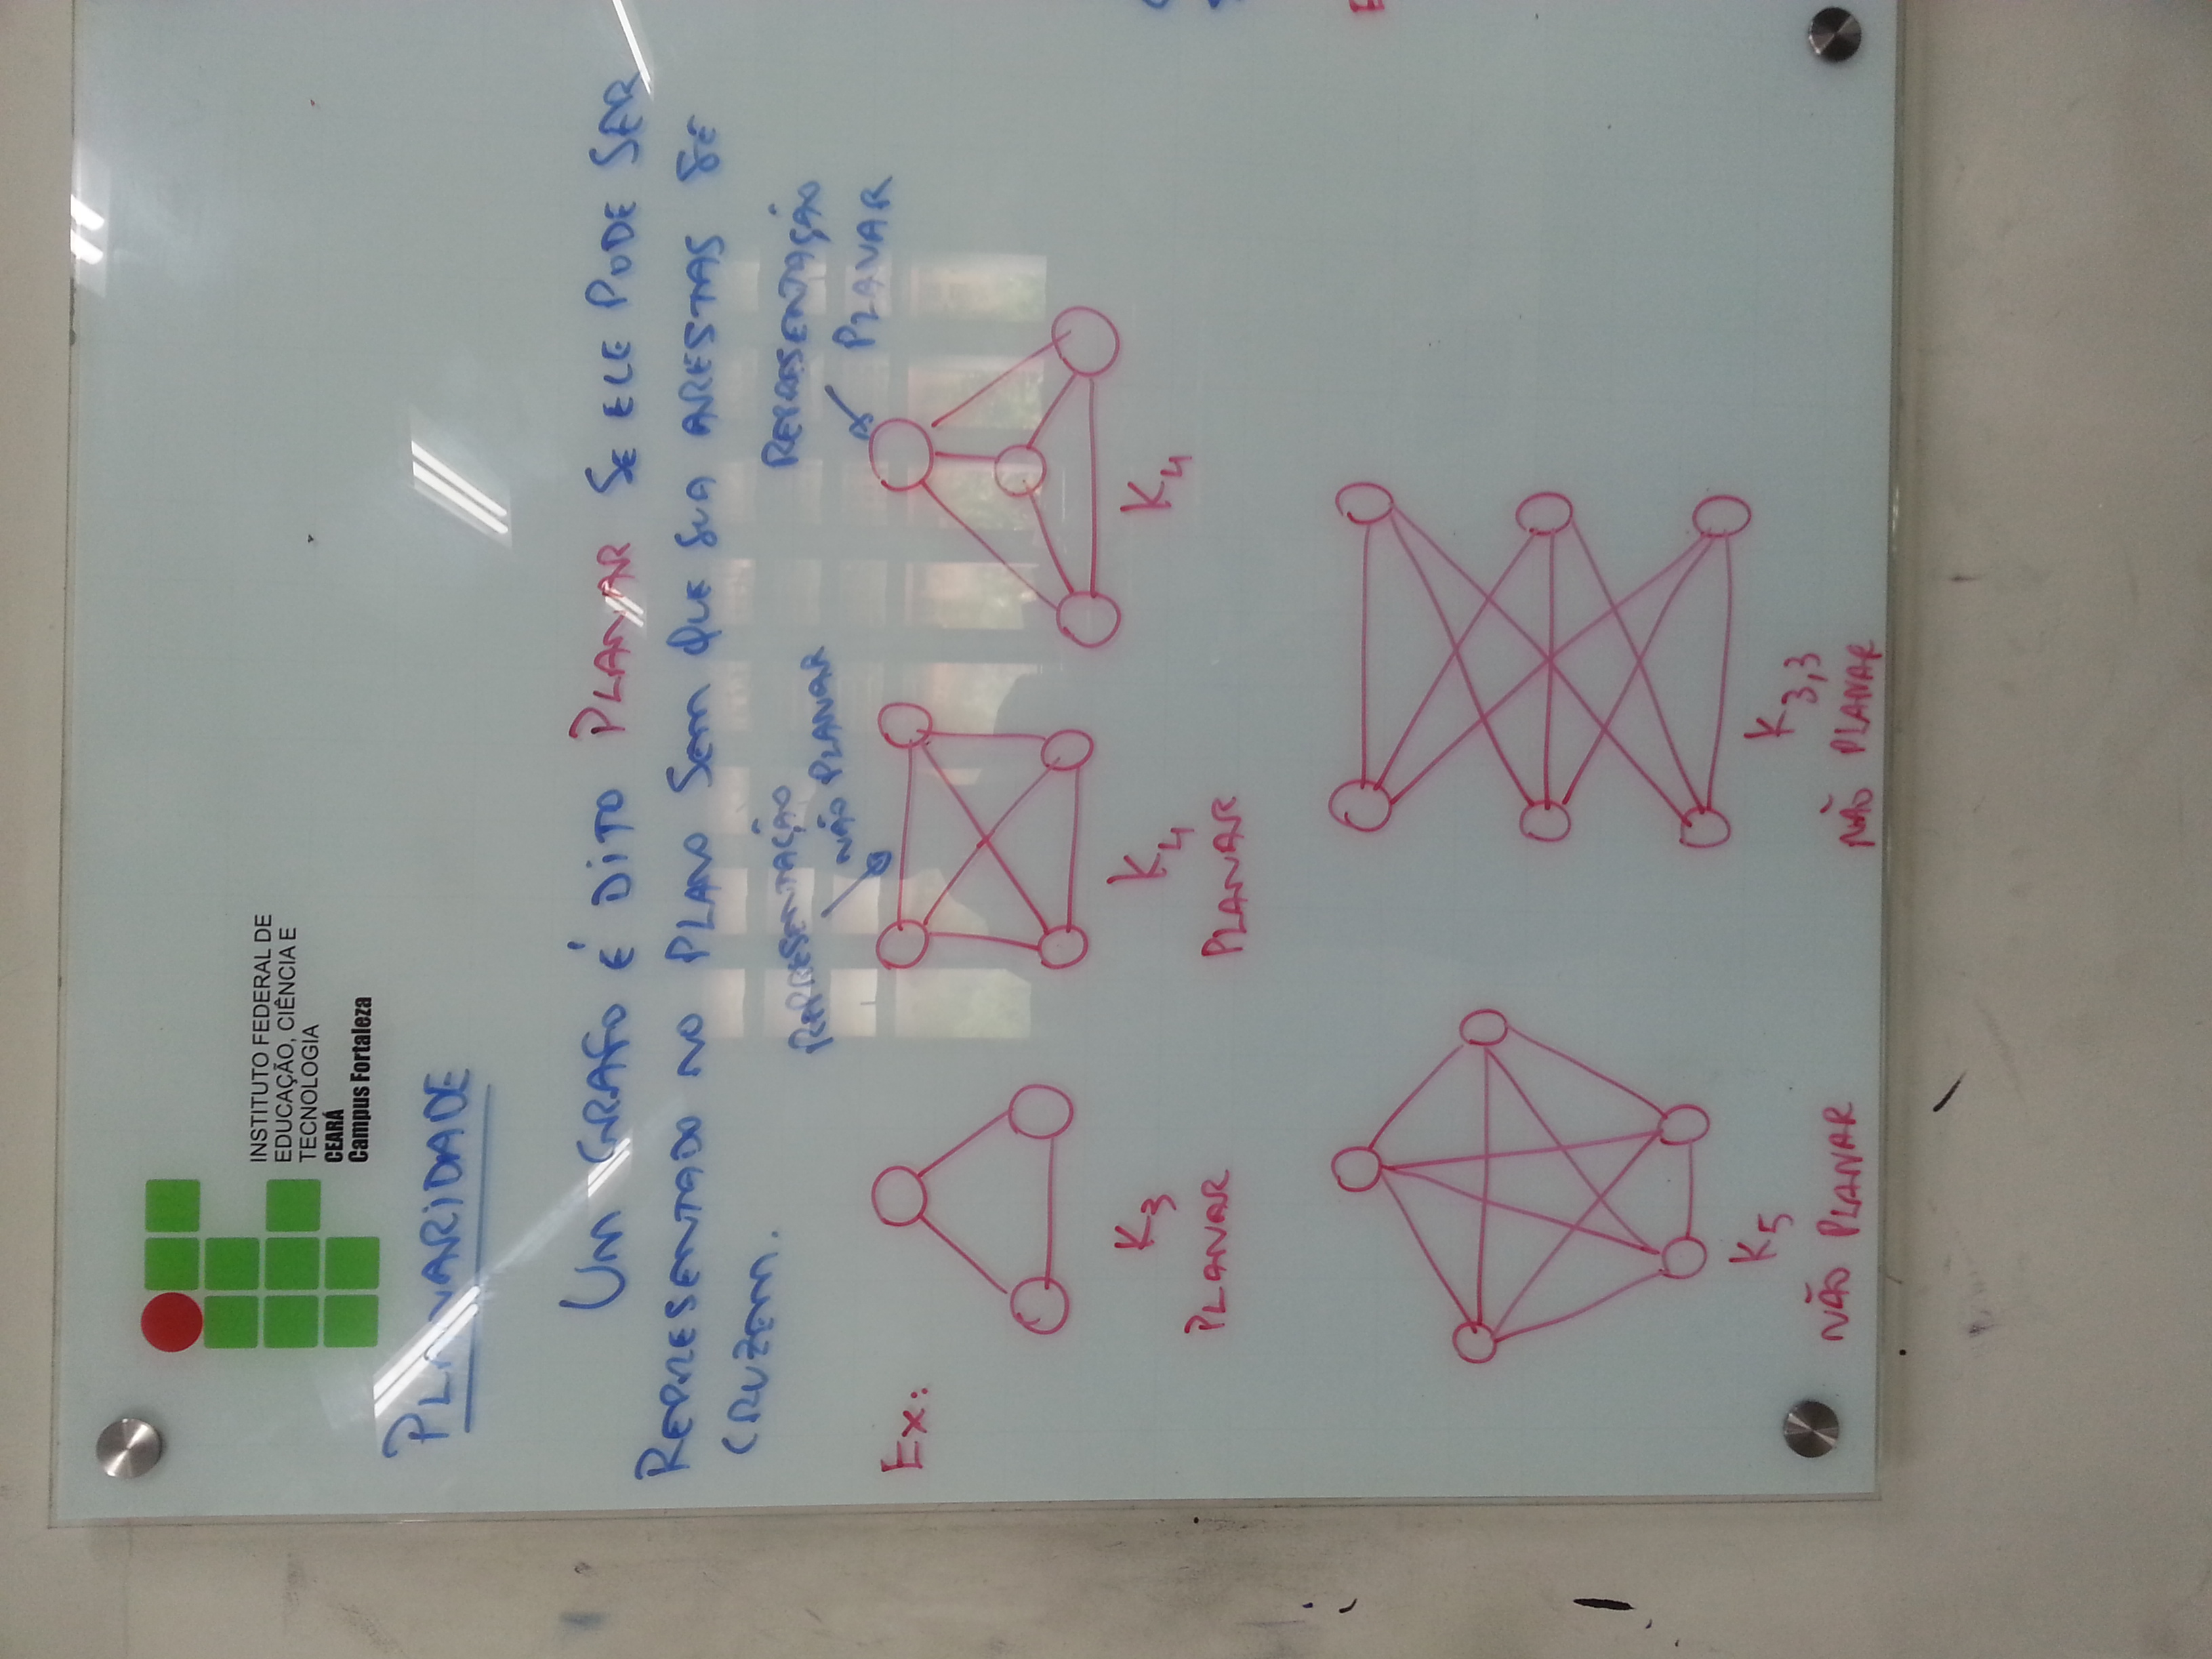 INSTITUTO FEDERAL DE
EDUCAÇÃO, CIÊNCIA E
TECNOLOGIA
CEARÁ
Campus Fortaleza
PLANARIDADE
UM GRAFO É DITO PLANAR SE ELE PODE SER
REPRESENTADO NO PLANO SEM QUE SUA ARESTAS SE
CRUZEM.
REPRESENTAÇÃO
NÃO PLANAR
REPRESENTAÇÃO
PLANAR
Ex:
K₃
PLANAR
K₄
PLANAR
K₄
K₅
NÃO PLANAR
K₃,₃
NÃO PLANAR